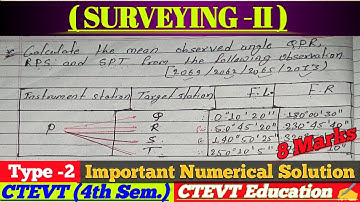 ( SURVEYING -II )
* Calculate the mean observed angle QPR,
RPS and SPT from the following observation
[2069/2062/2065/2073]
Instrument station Target station F.L. F.R
P Q 0°10'20" 180°00'30"
R 50°45'20" 230°45'40"
S 140°50'25"
T
8 Marks
Type -2 Important Numerical Solution
CTEVT (4th Sem.) CTEVT Education ✍